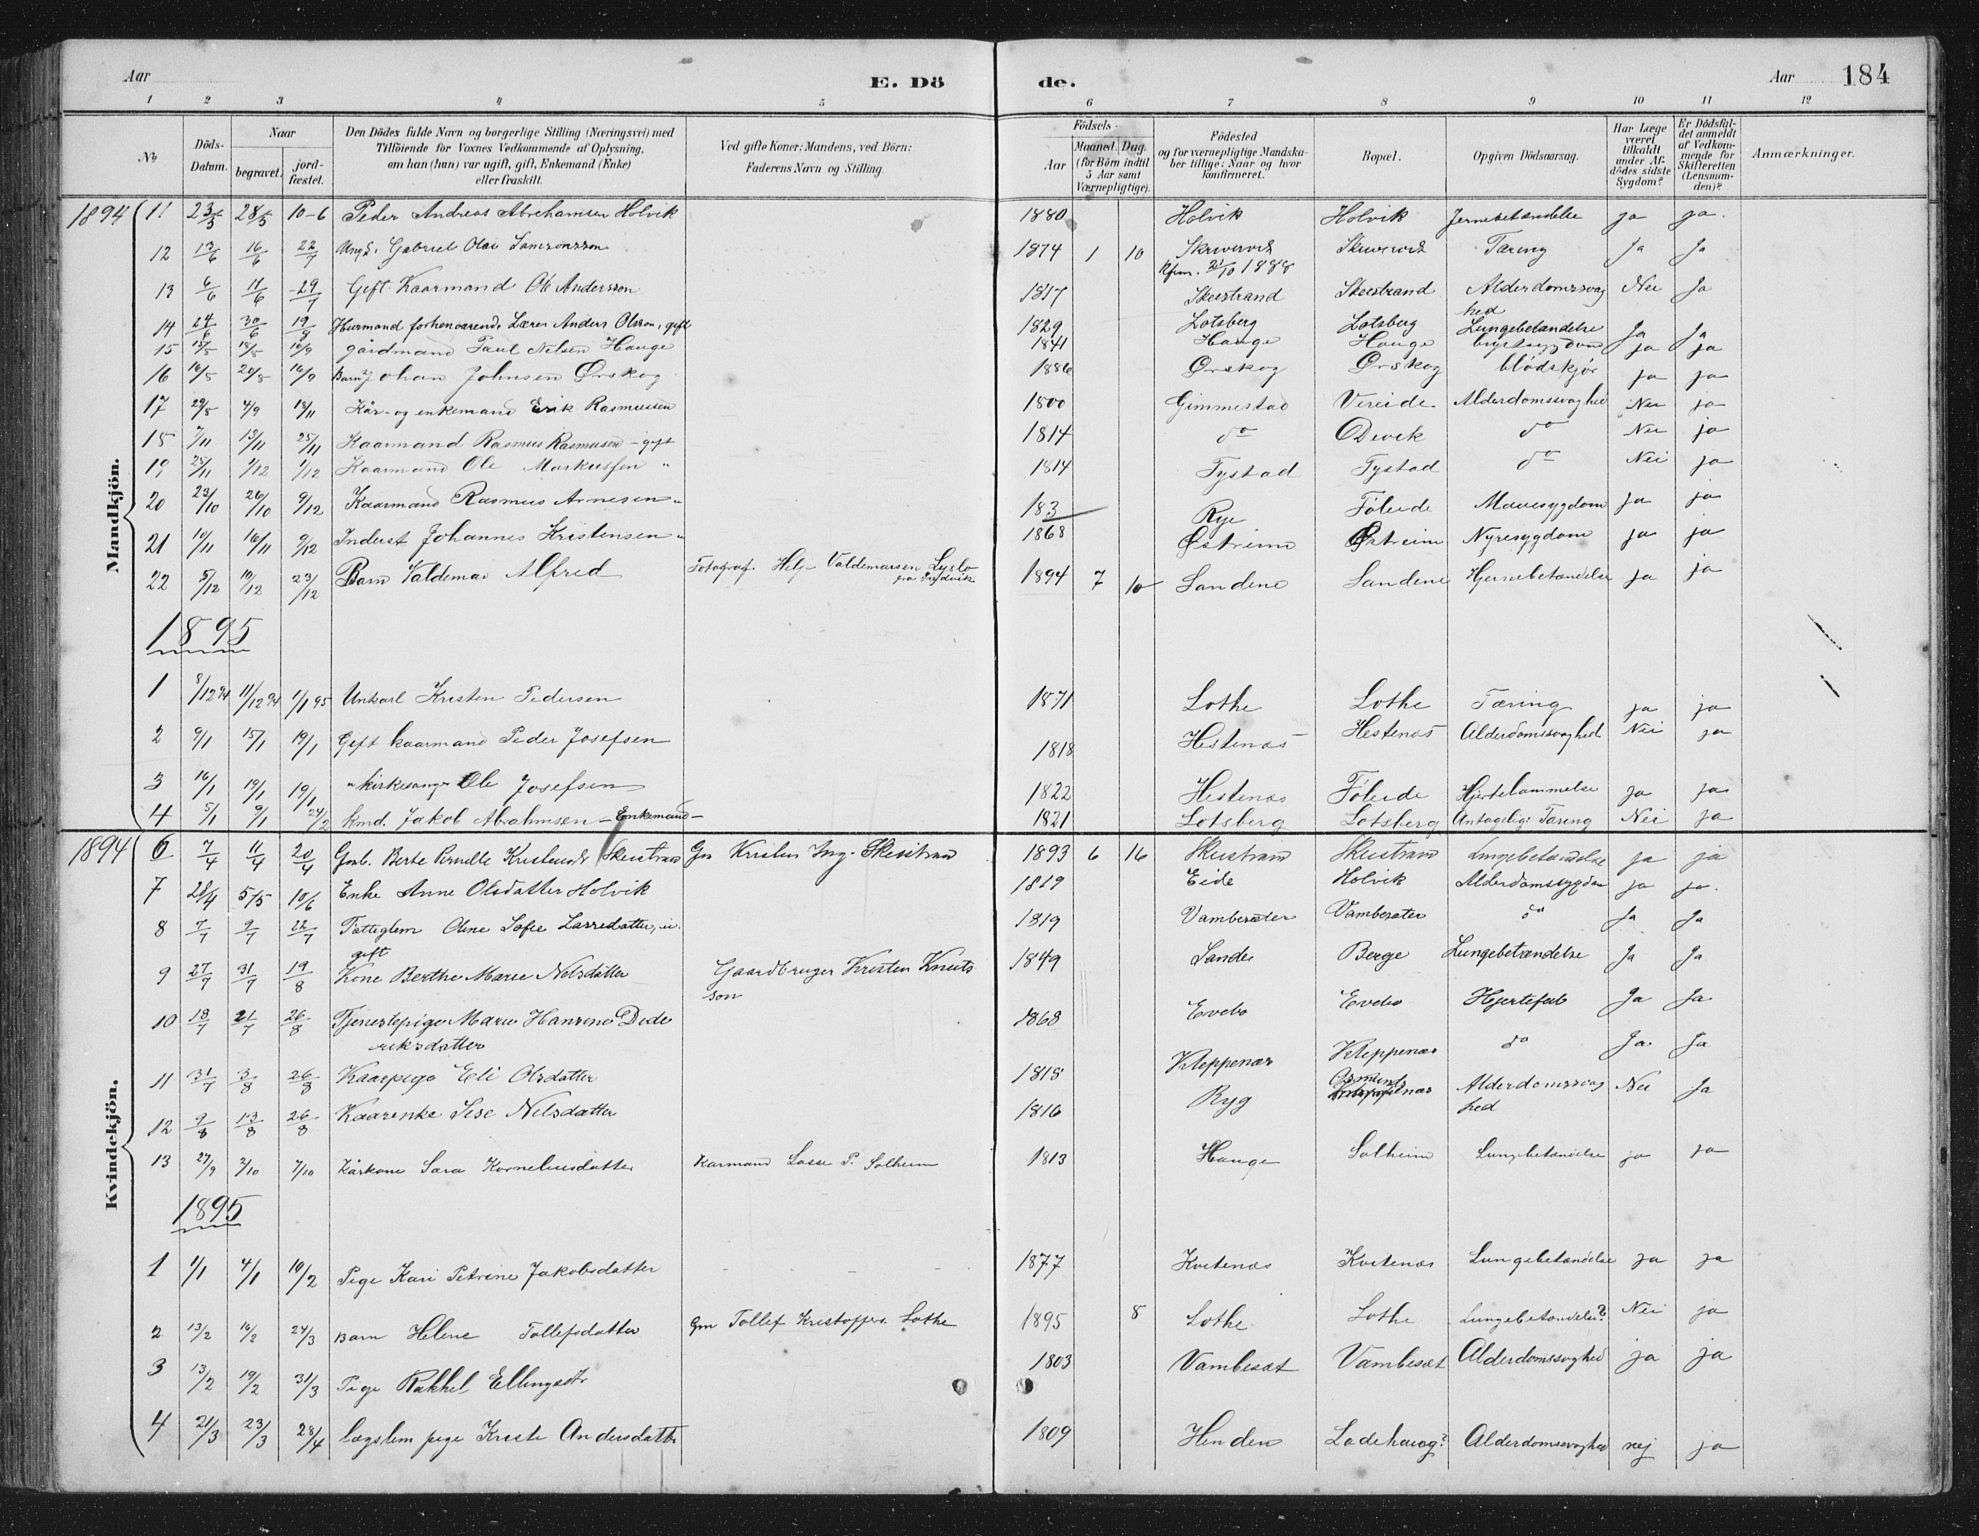 Aar
E. Dö
de.
Aar 184
1 2 3 4 5 6 7 8 9 10 11 12
No
Döds-Datum.
Naar
begravet.
jord-fæstet.
Den Dödes fulde Navn og borgerlige Stilling (Næringsvei) med Tilföiende for Voxnes Vedkommende af Oplysning, om han (hun) var ugift, gift, Enkemand (Enke) eller fraskilt.
Ved gifte Koner: Mandens, ved Börn: Faderens Navn og Stilling.
Födsels-
Aar
Maaned. Dag.
(for Börn indtil 5 Aar samt Værnepligtige).
Födested og for værnepligtige Mandskaber tillige: Naar og hvor konfirmeret.
Bopæl.
Opgiven Dödsaarsag.
Har Læge været tilkaldt under Afdödes sidste Sygdom?
Er Dödsfaldet anmeldt af Vedkommende for Skifteretten (Lensmanden)?
Anmærkninger.
Mandkjön.
1894 11 23/5 28/5 10-6 Peder Andreas Abrahamsen Holvik 1880 Holvik Holvik ja ja.
12 13/6 16/6 22/7 Ungk. Gabriel Olai Samsonsson 1874 1 10 Tæring Ja Ja
Kfm. 21/10 1888
13 6/6 11/6 29/7 Gift Kaarmand Ole Andersson 1817 Skeistrand Skeistrand Alderdomssvaghed Nei Ja
14 24/6 30/6 19/8 Huusmand forhenværende Lærer Anders Olsson, gift 1829 Lotsberg Lotsberg Lungebetændelse Ja Ja
15 13/8 18/8 16/9 gårdmand Paul Nelsen Hauge 1841 Hauge Hauge brystsygdom ja ja
16 16/8 20/8 16/9 Barn Johan Johnsen Ørskog 1886 Ørskog Ørskog blodskjør ja ja
17 29/8 4/9 18/11 Kår- og enkemand Erik Rasmussen 1800 Gimmestad Vereide Alderdomssvaghed Nei ja
18 7/11 13/11 25/11 Kaarmand Rasmus Rasmussen - gift 1814 do Devik do Nei ja
19 25/11 1/12 1/12 Kaarmand Ole Markussen " 1814 Tystad Tystad do Nei ja
20 23/10 26/10 9/12 Kaarmand Rasmus Arnesen " 183 Rye Føleide Mavesygdom ja ja
21 10/11 16/11 9/12 Inderst Johannes Kristensen " 1868 Østreim Østreim Nyresygdom ja ja
22 5/12 10/12 23/12 Barn Valdemar Alfred Fotograf. Helge Valdemarsen Lyslo 1894 7 10 Sandene Sandene Hjernebetændelse ja ja
1895
1 8/12 94 11/12 94 1/1 95 Unkarl Kristen Pedersen 1871 Lothe Lothe Tæring ja ja
2 9/1 15/1 19/1 Gift kaarmand Peder Josefsen 1818 Hestenæs Hestenæs Alderdomssvaghed Nei ja
3 16/1 19/1 19/1 " kirkesanger Ole Josefsen 1822 Hestenæs Føleide Hjertelammelse ja ja
4 5/1 9/1 24/2 kmd. Jakob Abrahmsen - Enkemand - 1821 Lotsberg Lotsberg Antagelig: Tæring Nei ja
Kvindekjön.
1894 6 7/4 11/4 20/4 Gmb. Berte Pernille Skeistrand Gm Kristen Skeistrand 1893 6 16 Skeistrand Skeistrand Lungebetændelse ja ja
7 28/4 5/5 10/6 Enke Anne Olsdatter Holvik 1819 Eide Holvik Alderdomssygdom ja ja.
8 7/7 9/7 22/7 Fattiglem Oline Sofie Larsdatter, ugift 1819 Vambesæter Vambesæter do Ja Ja
9 27/7 31/7 19/8 Kone Berthe Marie Nelsdatter Gaardbruger Kristen Knutsson 1849 Sande Berge Lungebetændelse Ja Ja
10 18/7 21/7 26/8 Tjenestepige Marie Hansine Dideriksdatter 1868 Evebø Evebø Hjertefeil Ja Ja
11 31/7 3/8 26/8 Kaarpige Eli Olsdatter 1818 Kleppenæs Kleppenæs do Ja Ja
12 9/8 13/8 26/8 Kaarenke Sise Nelsdatter 1816 Ryg Alderdomssvaghed Nei Ja
13 27/9 3/10 7/10 Kårkone Sara Korneliusdatter Karmand Lasse P. Solheim 1813 Hauge Solheim Lungebetændelse ja ja
1895
1 1/1 4/1 10/2 Pige Kari Petrine Jakobsdatter - - - - 1877 Kvitenæs Kvitenæs Lungebetændelse ja ja
2 13/2 16/2 24/3 Barn Helene Tollefsdatter Gm Tollef Kristoffers. Lothe 1895 8 Lothe Lothe Lungebetændelse? Nei ja
3 13/2 19/2 31/3 Pige Rakkel Ellingsdtr 1803 Vambesæt Vambesæt Alderdomssvaghed ja ja
4 21/3 23/3 28/4 lægslem pige Kristi Andersdatter 1809 Henden Ladehaug? Alderdomssvaghed nej ja